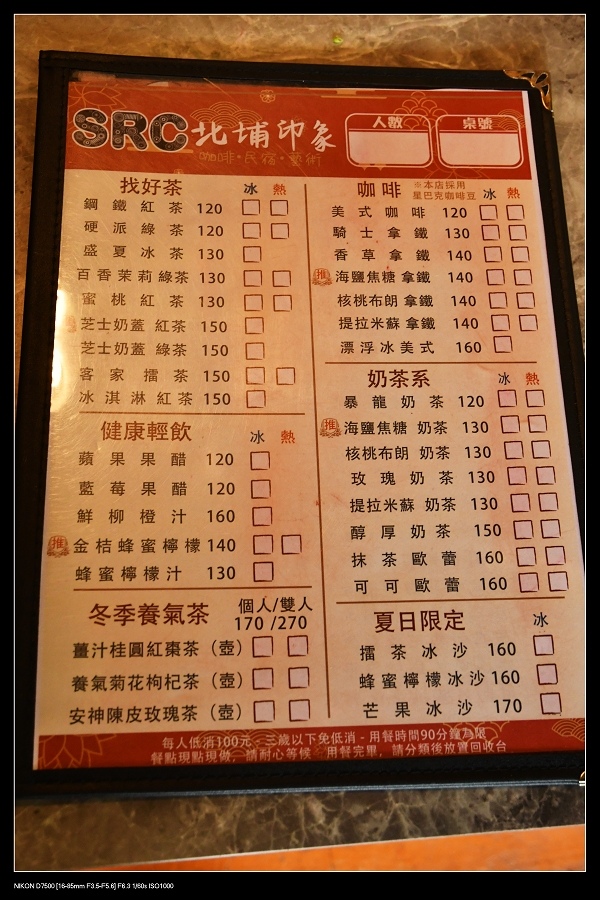 SRC 北埔印象
咖啡·民宿·藝術
人數
桌號
找好茶 冰 熱
鋼鐵紅茶 120
硬派綠茶 120
盛夏冰茶 130
百香茉莉綠茶 130
蜜桃紅茶 130
芝士奶蓋紅茶 150
芝士奶蓋綠茶 150
客家擂茶 150
冰淇淋紅茶 150
健康輕飲 冰 熱
蘋果果醋 120
藍莓果醋 120
鮮柳橙汁 160
推 金桔蜂蜜檸檬 140
蜂蜜檸檬汁 130
冬季養氣茶 個人/雙人
170 /270
薑汁桂圓紅棗茶（壺）
養氣菊花枸杞茶（壺）
安神陳皮玫瑰茶（壺）
咖啡 ※本店採用
星巴克咖啡豆 冰 熱
美式咖啡 120
騎士拿鐵 130
香草拿鐵 140
推 海鹽焦糖拿鐵 140
核桃布朗拿鐵 140
提拉米蘇拿鐵 140
漂浮冰美式 160
奶茶系 冰 熱
暴龍奶茶 120
推 海鹽焦糖奶茶 130
核桃布朗奶茶 130
玫瑰奶茶 130
提拉米蘇奶茶 130
醇厚奶茶 150
抹茶歐蕾 160
可可歐蕾 160
夏日限定 冰
擂茶冰沙 160
蜂蜜檸檬冰沙 160
芒果冰沙 170
每人低消100元，三歲以下免低消 - 用餐時間90分鐘為限
餐點現點現做，請耐心等候 用餐完畢，請分類後放置回收台
NIKON D7500 [16-85mm F3.5-F5.6] F6.3 1/60s ISO1000